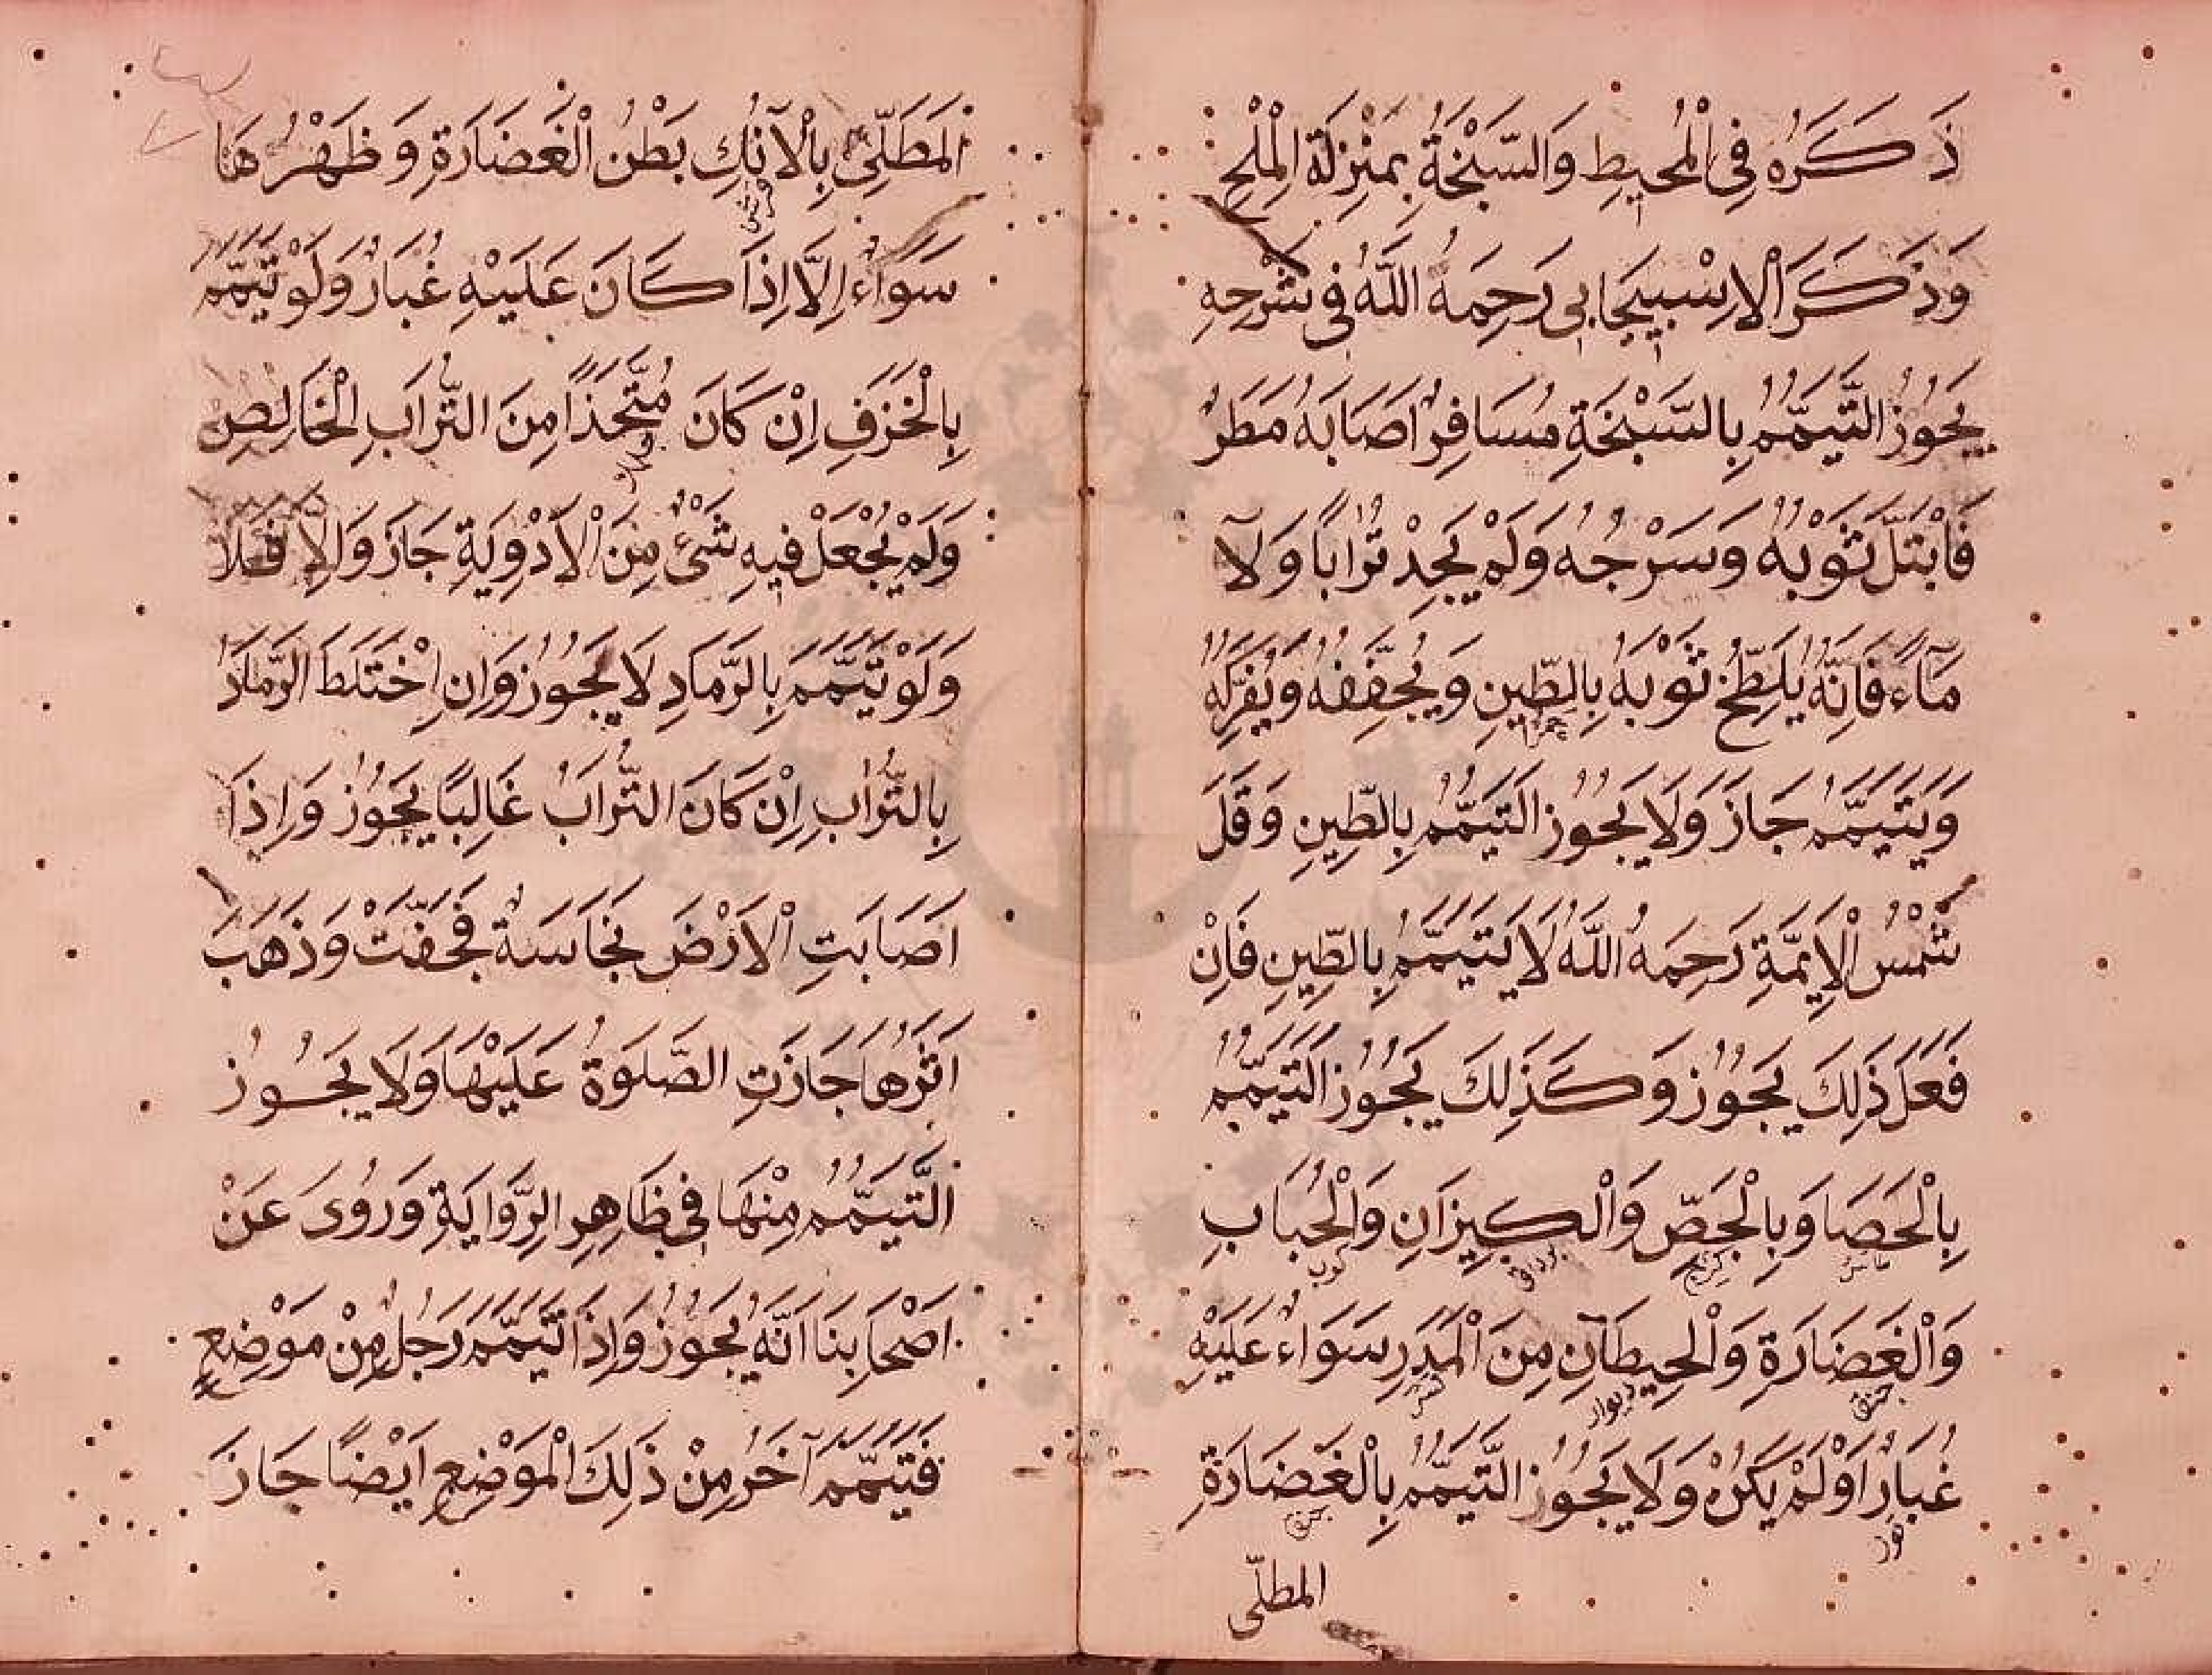 ذَكَرَهُ فِى الْمُحِيطِ وَالسَّبْخَةُ بِمَنْزِلَةِ الْمِلْحِ
وَذَكَرَ الْاِسْبِيجَابِى رَحِمَهُ اللّٰهُ فِى شَرْحِهِ
يَجُوزُ التَّيَمُّمُ بِالسَّبْخَةِ مُسَافِرٌ اَصَابَهُ مَطَرٌ
فَابْتَلَّ ثَوْبُهُ وَسَرْجُهُ وَلَمْ يَجِدْ تُرَابًا وَلَا
مَآءً فَاِنَّهُ يُلَطِّخُ ثَوْبَهُ بِالطِّينِ وَيُجَفِّفُهُ وَيَفْرُكُهُ
وَيَتَيَمَّمُ جَازَ وَلَا يَجُوزُ التَّيَمُّمُ بِالطِّينِ وَقَلَ
شَمْسُ الْاَيِمَّةِ رَحِمَهُ اللّٰهُ لَا يَتَيَمَّمُ بِالطِّينِ فَاِنْ
فَعَلَ ذَلِكَ يَجُوزُ وَكَذَلِكَ يَجُوزُ التَّيَمُّمُ
بِالْحَصَا وَبِالْجَصِّ وَالْكِيزَانِ وَالْحُبَابِ
كوب
وَالْغَضَارَةِ وَالْحِيطَآنِ مِنَ الْمَدَرِ سَوَاءٌ عَلَيْهِ
ديوار
غُبَارٌ اَوْ لَمْ يَكُنْ وَلَا يَجُوزُ التَّيَمُّمُ بِالْغَضَارَةِ
المطلّى
الْمَطَلِّى بِالْآنُكِ بَطْنُ الْغَضَارَةِ وَظَهْرُهَا
سَوَآءٌ اِلَّا اِذَا كَانَ عَلَيْهِ غُبَارٌ وَلَوْ تَيَمَّمَ
بِالْخَزَفِ اِنْ كَانَ مُتَّخَذًا مِنَ التُّرَابِ الْخَالِصِ
وَلَمْ يُجْعَلْ فِيهِ شَىْءٌ مِنَ الْاَدْوِيَةِ جَازَ وَاِلَّا فَلَا
وَلَوْ تَيَمَّمَ بِالرَّمَادِ لَا يَجُوزُ وَاِنِ اخْتَلَطَ الرَّمَادُ
بِالتُّرَابِ اِنْ كَانَ التُّرَابُ غَالِبًا يَجُوزُ وَاِذَا
اَصَابَتِ الْاَرْضَ نَجَاسَةٌ فَجَفَّتْ وَذَهَبَ
اَثَرُهَا جَازَتِ الصَّلَوةُ عَلَيْهَا وَلَا يَجُوزُ
التَّيَمُّمُ مِنْهَا فِى ظَاهِرِ الرِّوَايَةِ وَرُوِىَ عَنْ
اَصْحَابِنَا اَنَّهُ يَجُوزُ وَاِذَا تَيَمَّمَ رَجُلٌ مِنْ مَوْضِعٍ
فَتَيَمَّمَ آخَرُ مِنْ ذَلِكَ الْمَوْضِعِ اَيْضًا جَازَ